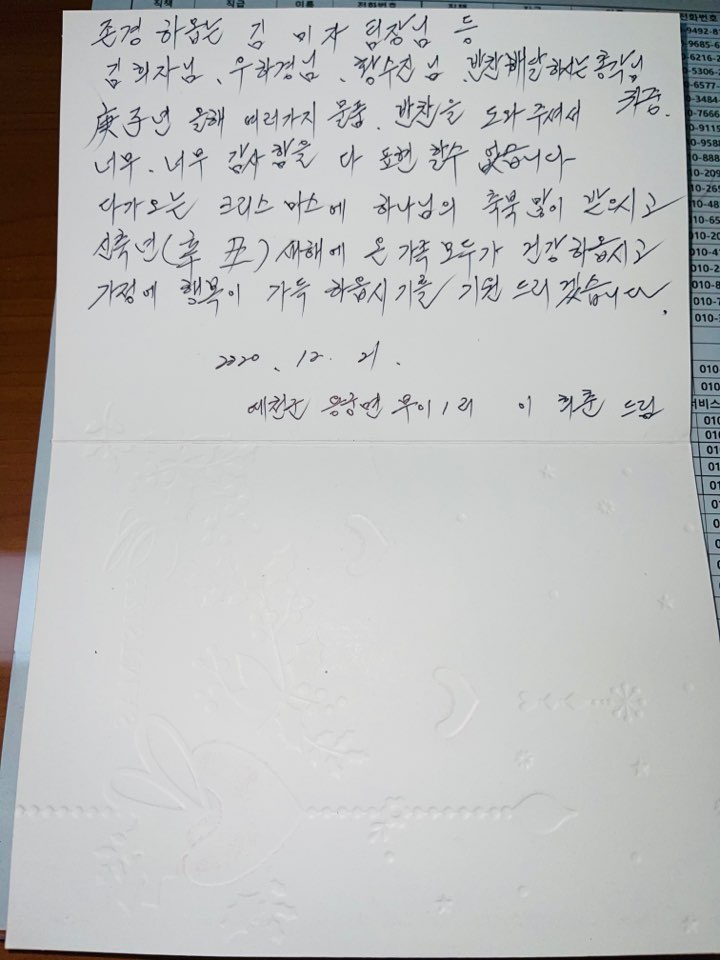 직책 직급 이름 전화번호 직책 직급
존경 하옵는 김 미자 팀장님 등
김희자님, 우하경님, 황수진님, 반찬배달하시는 총각님
귀중.
庚子년 올해 여러가지 물품, 반찬을 도와주셔서
너무, 너무 감사함을 다 표현 할수 없습니다
다가오는 크리스마스에 하나님의 축복 많이 받으시고
신축년( 丑) 새해에 온 가족 모두가 건강 하옵시고
가정에 행복이 가득 하옵시기를 기원 드리겠습니다.
2020. 12. 21.
예천군 용궁면 무이1리 이 희춘 드림